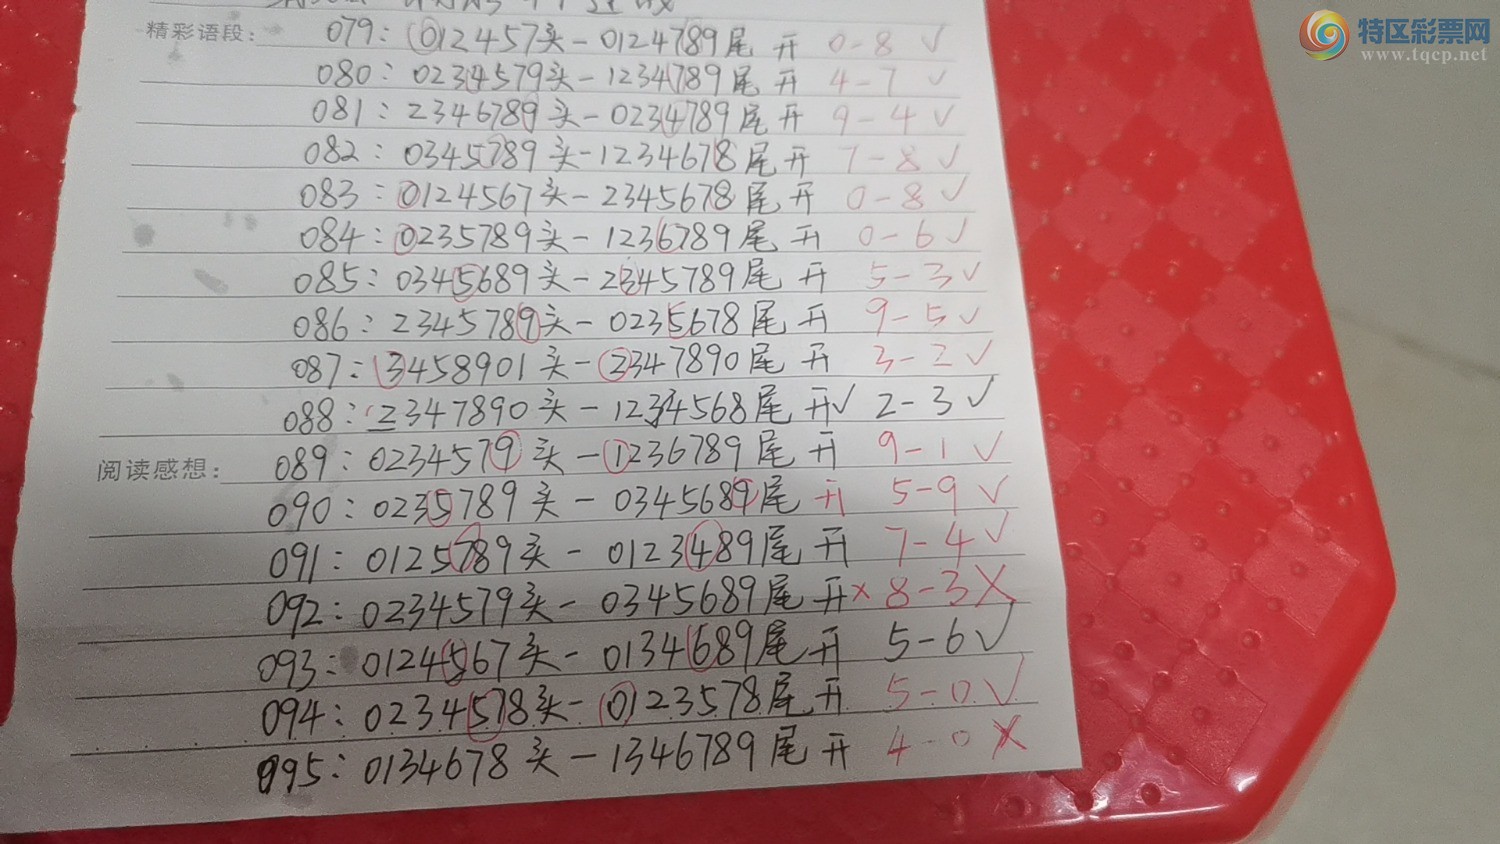 特区彩票网
www.tqcp.net
精彩语段: 079: 012457头-0124789尾 开 0-8 √
080: 0234579头-1234789尾 开 4-7 √
081: 2346789头-0234789尾 开 9-4 √
082: 0345789头-1234678尾 开 7-8 √
083: 0124567头-2345678尾 开 0-8 √
084: 0235789头-1236789尾 开 0-6 √
085: 0345689头-2345789尾 开 5-3 √
086: 2345789头-0235678尾 开 9-5 √
087: 3458901头-2347890尾 开 3-2 √
088: 2347890头-1234568尾 开√ 2-3 √
阅读感想: 089: 0234579头-1236789尾 开 9-1 √
090: 0235789头-0345689尾 开 5-9 √
091: 0125789头-0123489尾 开 7-4 √
092: 0234579头-0345689尾 开× 8-3 ×
093: 0124567头-0134689尾 开 5-6 √
094: 0234578头-0123578尾 开 5-0 √
095: 0134678头-1346789尾 开 4-0 ×